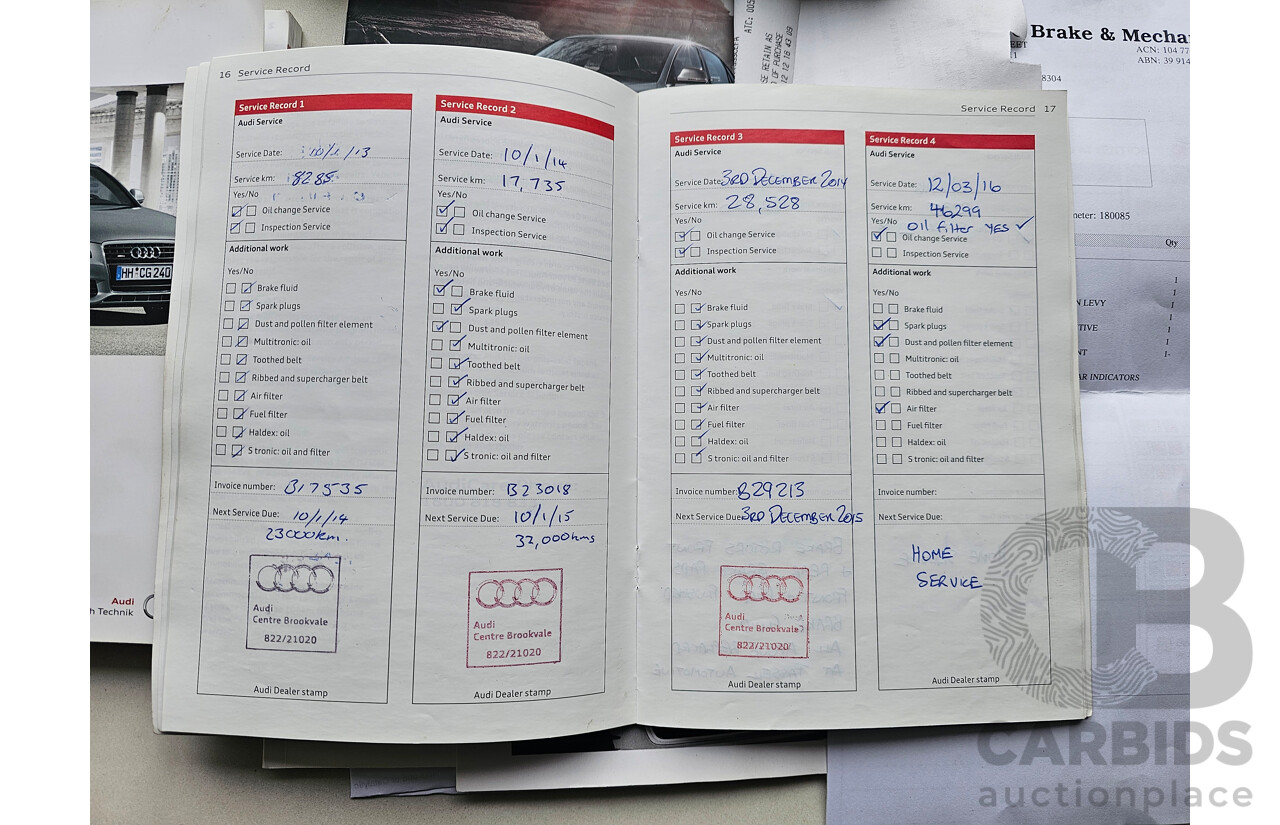 16 Service Record
Service Record 1
Audi Service
Service Date: 10/1/13
Service km: 8285
Yes/No
Oil change Service
Inspection Service
Additional work
Yes/No
Brake fluid
Spark plugs
Dust and pollen filter element
Multitronic: oil
Toothed belt
Ribbed and supercharger belt
Air filter
Fuel filter
Haldex: oil
S tronic: oil and filter
Invoice number: B17535
Next Service Due: 10/1/14
23000km.
Audi
Centre Brookvale
822/21020
Audi Dealer stamp
Service Record 2
Audi Service
Service Date: 10/1/14
Service km: 17,735
Yes/No
Oil change Service
Inspection Service
Additional work
Yes/No
Brake fluid
Spark plugs
Dust and pollen filter element
Multitronic: oil
Toothed belt
Ribbed and supercharger belt
Air filter
Fuel filter
Haldex: oil
S tronic: oil and filter
Invoice number: B23018
Next Service Due: 10/1/15
32,000kms
Audi
Centre Brookvale
822/21020
Audi Dealer stamp
Service Record 17
Service Record 3
Audi Service
Service Date: 3RD DECEMBER 2014
Service km: 28,528
Yes/No
Oil change Service
Inspection Service
Additional work
Yes/No
Brake fluid
Spark plugs
Dust and pollen filter element
Multitronic: oil
Toothed belt
Ribbed and supercharger belt
Air filter
Fuel filter
Haldex: oil
S tronic: oil and filter
Invoice number: B29213
Next Service Due: 3RD DECEMBER 2015
Audi
Centre Brookvale
822/21020
Audi Dealer stamp
Service Record 4
Audi Service
Service Date: 12/03/16
Service km: 46299
Yes/No OIL FILTER YES ✓
Oil change Service
Inspection Service
Additional work
Yes/No
Brake fluid
Spark plugs
Dust and pollen filter element
Multitronic: oil
Toothed belt
Ribbed and supercharger belt
Air filter
Fuel filter
Haldex: oil
S tronic: oil and filter
Invoice number:
Next Service Due:
HOME
SERVICE
Audi Dealer stamp
HH CG 240
Audi
h Technik
Brake & Mecha
ACN: 104 77
ABN: 39 914
8304
meter: 180085
Qty
1
N LEVY 1
1
TIVE 1
NT 1-
AR INDICATORS
SE RETAIN AS
OF PURCHASE
12 12 16 43 09
ATC: 005
CB
CARBIDS
auctionplace